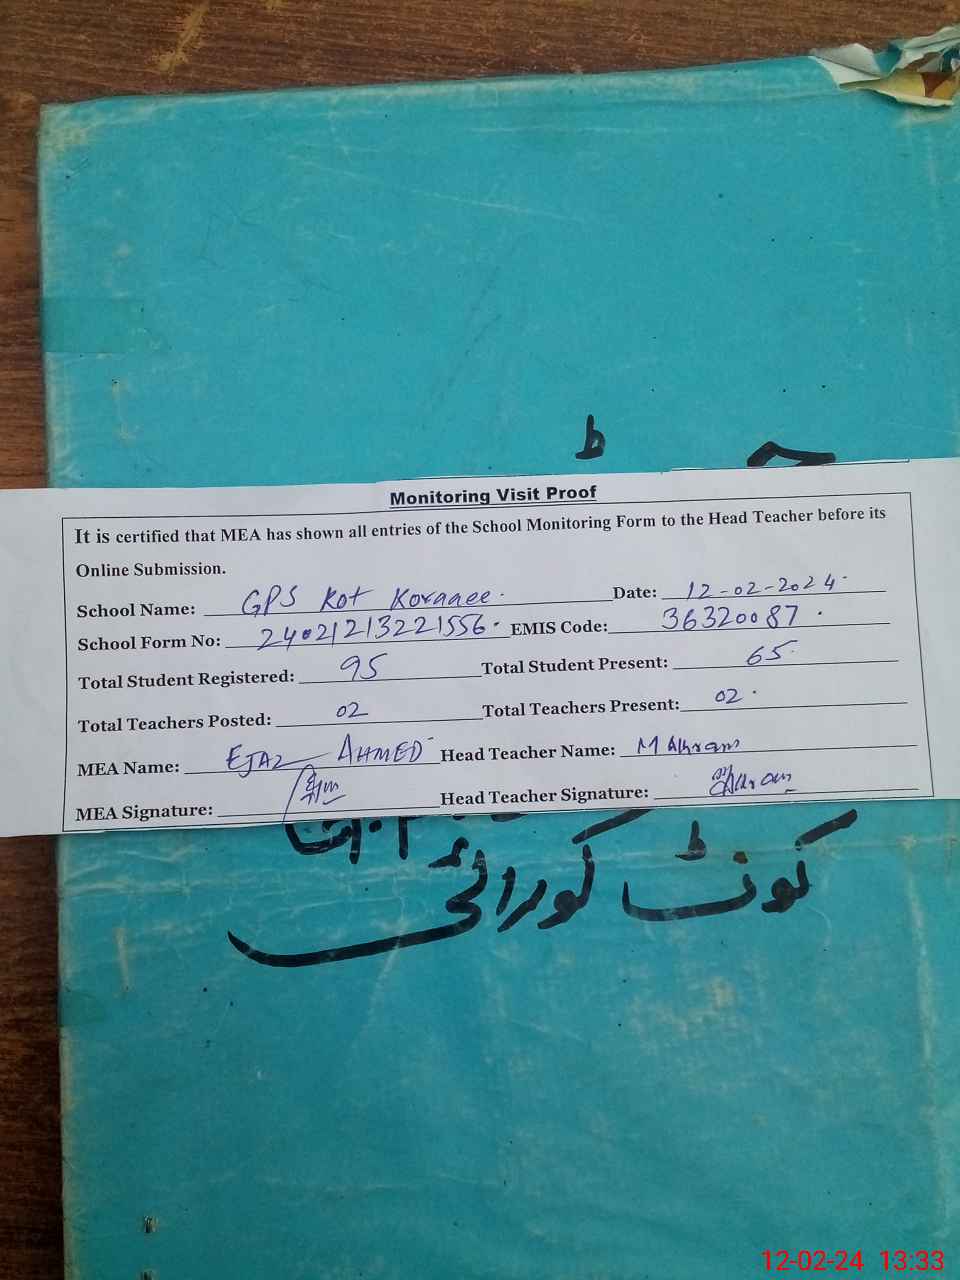 Monitoring Visit Proof
It is certified that MEA has shown all entries of the School Monitoring Form to the Head Teacher before its
Online Submission.
School Name: GPS Kot Koraaee. Date: 12-02-2024.
School Form No: 24021213221556. EMIS Code: 36320087.
Total Student Registered: 95 Total Student Present: 65.
Total Teachers Posted: 02 Total Teachers Present: 02.
MEA Name: EJAZ AHMED Head Teacher Name: M Akram
MEA Signature: Head Teacher Signature: Akram
کوٹ کورائی
12-02-24 13:33